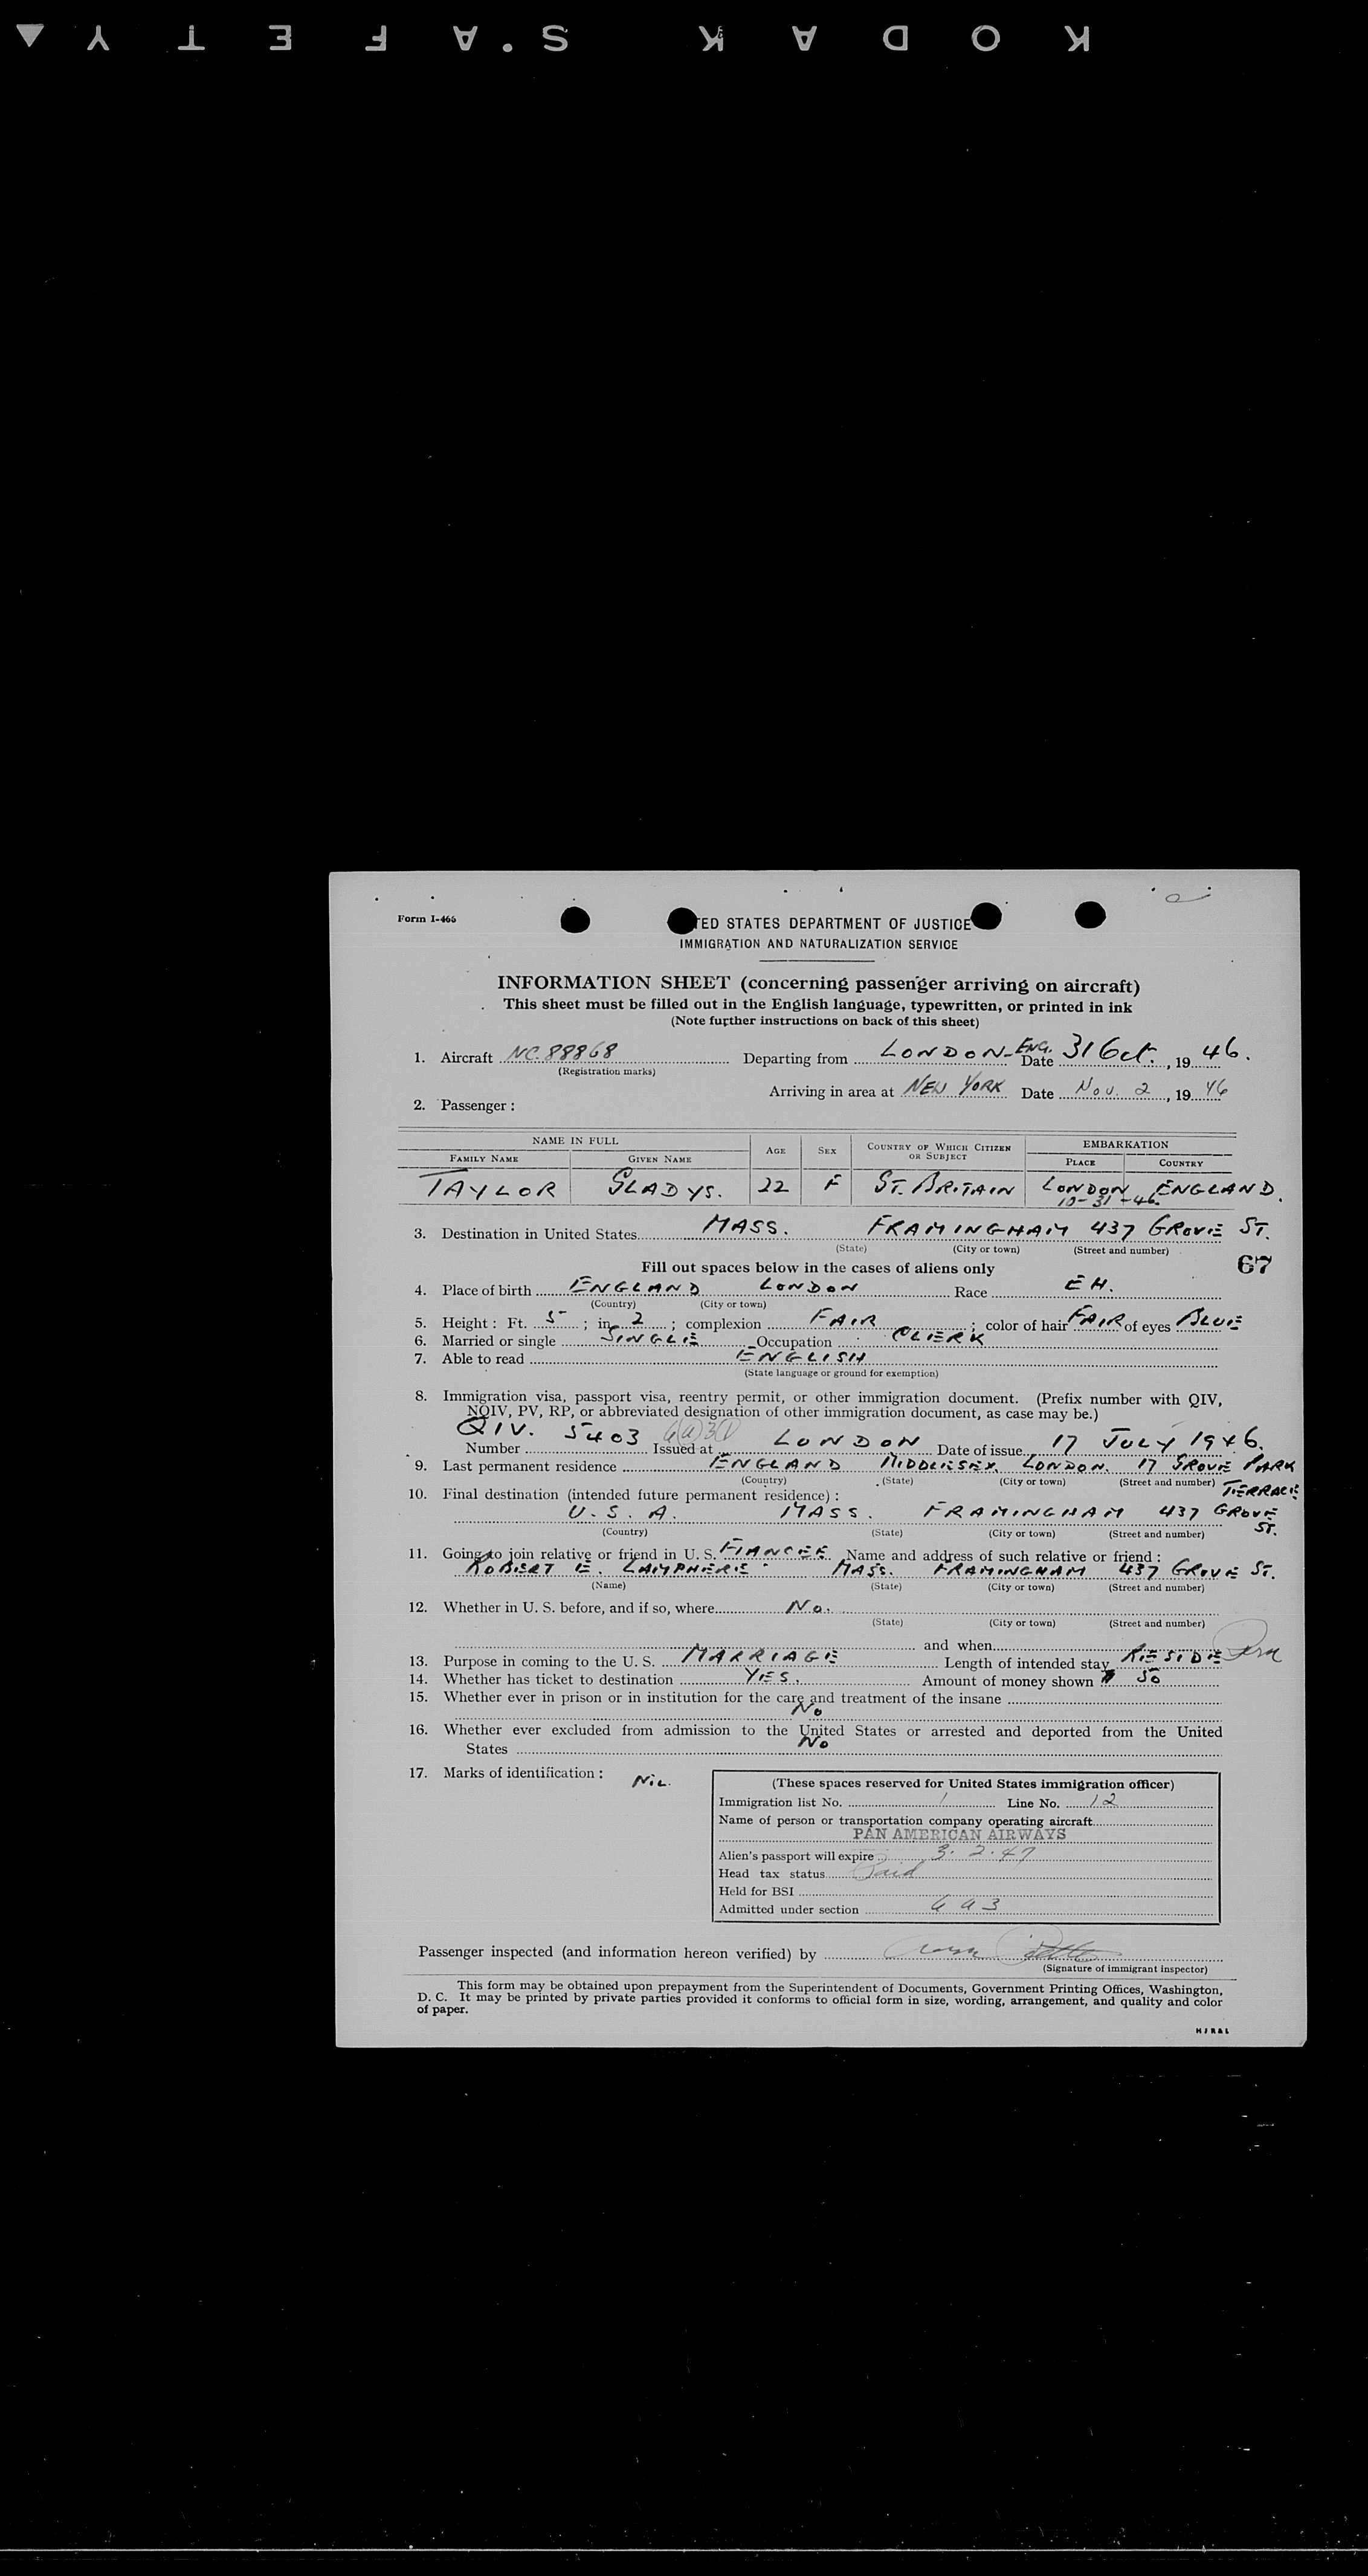 KODAK SAFETY
Form I-466
TED STATES DEPARTMENT OF JUSTICE
IMMIGRATION AND NATURALIZATION SERVICE
INFORMATION SHEET (concerning passenger arriving on aircraft)
This sheet must be filled out in the English language, typewritten, or printed in ink
(Note further instructions on back of this sheet)
1. Aircraft NC 88868 Departing from LONDON-ENG. Date 31 Oct., 19 46.
(Registration marks)
Arriving in area at NEW YORK Date Nov. 2, 19 46
2. Passenger:
NAME IN FULL AGE SEX COUNTRY OF WHICH CITIZEN OR SUBJECT EMBARKATION
FAMILY NAME GIVEN NAME PLACE COUNTRY
TAYLOR GLADYS. 22 F GT. BRITAIN LONDON ENGLAND.
10-31-46
3. Destination in United States MASS. FRAMINGHAM 437 GROVE ST.
(State) (City or town) (Street and number)
Fill out spaces below in the cases of aliens only 67
4. Place of birth ENGLAND LONDON Race
(Country) (City or town)
5. Height: Ft. 5 ; in. 2 ; complexion FAIR ; color of hair FAIR of eyes BLUE
6. Married or single SINGLE Occupation CLERK
7. Able to read ENGLISH
(State language or ground for exemption)
8. Immigration visa, passport visa, reentry permit, or other immigration document. (Prefix number with QIV,
NQIV, PV, RP, or abbreviated designation of other immigration document, as case may be.)
QIV. 5403 6(a)3(1) LONDON 17 JULY 1946.
Number Issued at Date of issue
9. Last permanent residence ENGLAND MIDDLESEX. LONDON. 17 GROVE PARK
(Country) (State) (City or town) (Street and number) TERRACE
10. Final destination (intended future permanent residence):
U.S.A. MASS. FRAMINGHAM 437 GROVE ST.
(Country) (State) (City or town) (Street and number)
11. Going to join relative or friend in U. S. FIANCEE Name and address of such relative or friend:
ROBERT E. LAMPHERE MASS. FRAMINGHAM 437 GROVE ST.
(Name) (State) (City or town) (Street and number)
12. Whether in U. S. before, and if so, where No.
(State) (City or town) (Street and number)
and when
13. Purpose in coming to the U. S. MARRIAGE Length of intended stay RESIDE
14. Whether has ticket to destination YES. Amount of money shown $ 50
15. Whether ever in prison or in institution for the care and treatment of the insane
No
16. Whether ever excluded from admission to the United States or arrested and deported from the United
States No
17. Marks of identification: NIL.
(These spaces reserved for United States immigration officer)
Immigration list No. 1 Line No. 12
Name of person or transportation company operating aircraft
PAN AMERICAN AIRWAYS
Alien's passport will expire 3.2.47
Head tax status Paid
Held for BSI
Admitted under section 6 a 3
Passenger inspected (and information hereon verified) by
(Signature of immigrant inspector)
This form may be obtained upon prepayment from the Superintendent of Documents, Government Printing Offices, Washington,
D. C. It may be printed by private parties provided it conforms to official form in size, wording, arrangement, and quality and color
of paper.